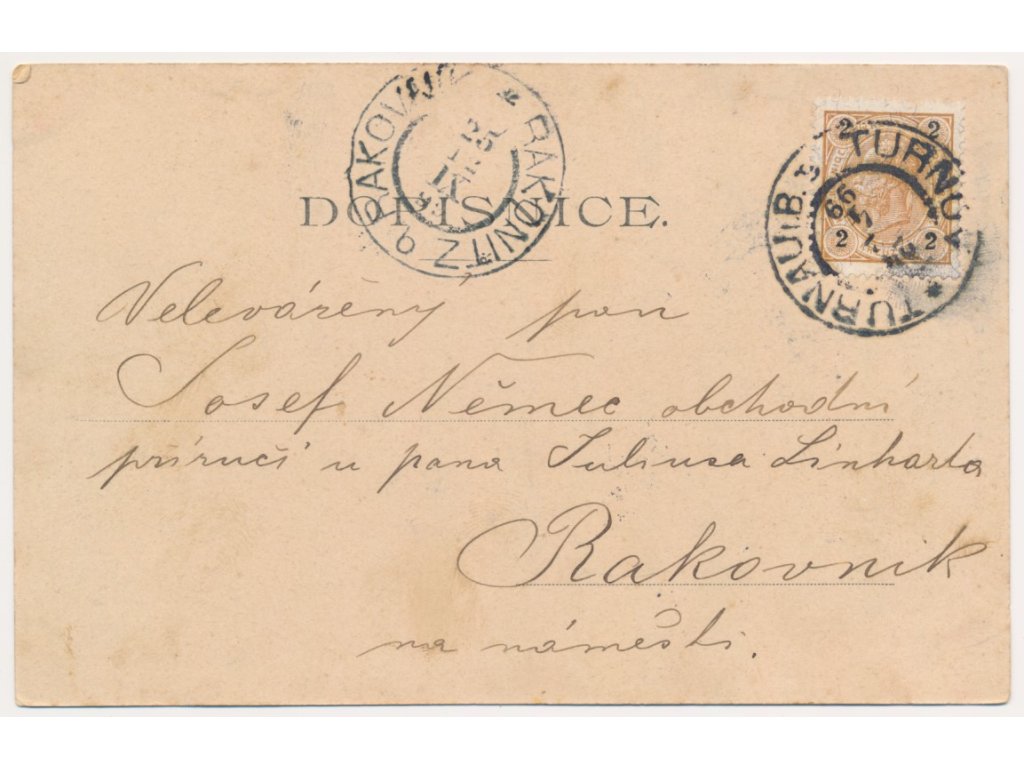 RAKOVNÍK * RAKONITZ
DOPISNICE.
2 2
2 2
TURNOV * TURNAU i. B.
99
Velevážený pan
Josef Němec obchodní
příručí u pana Juliusa Linharta
Rakovník
na náměstí.